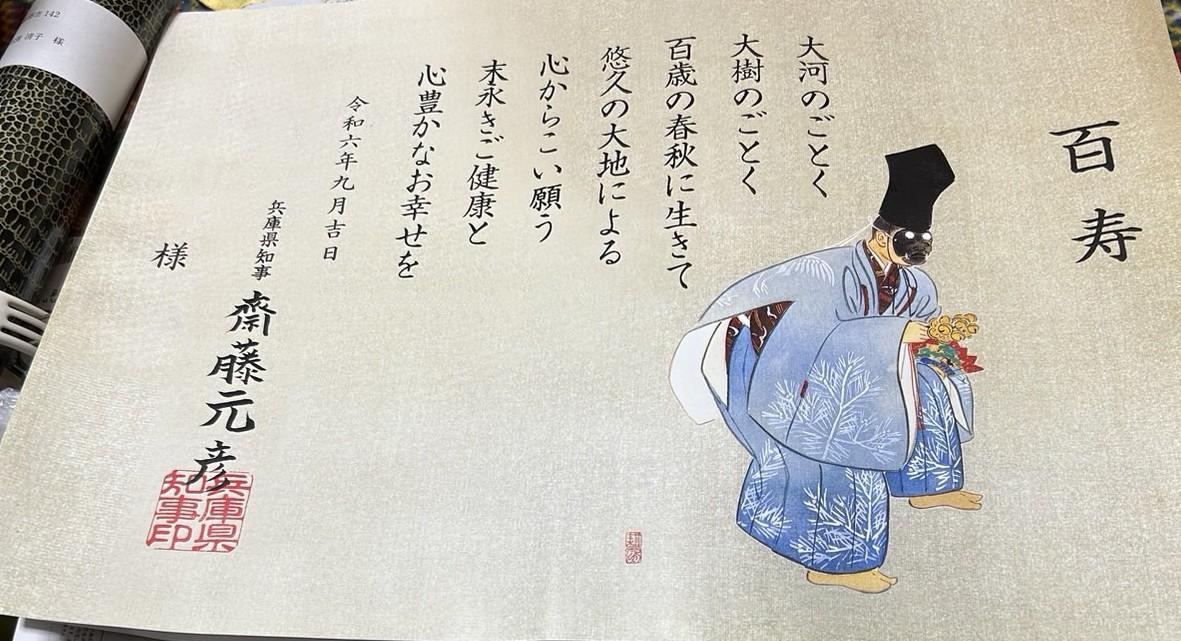 百寿
大河のごとく
大樹のごとく
百歳の春秋に生きて
悠久の大地による
心からこい願う
末永きご健康と
心豊かなお幸せを
令和六年九月吉日
兵庫県知事 齋藤元彦
兵庫県
知事印
様
142
清子 様